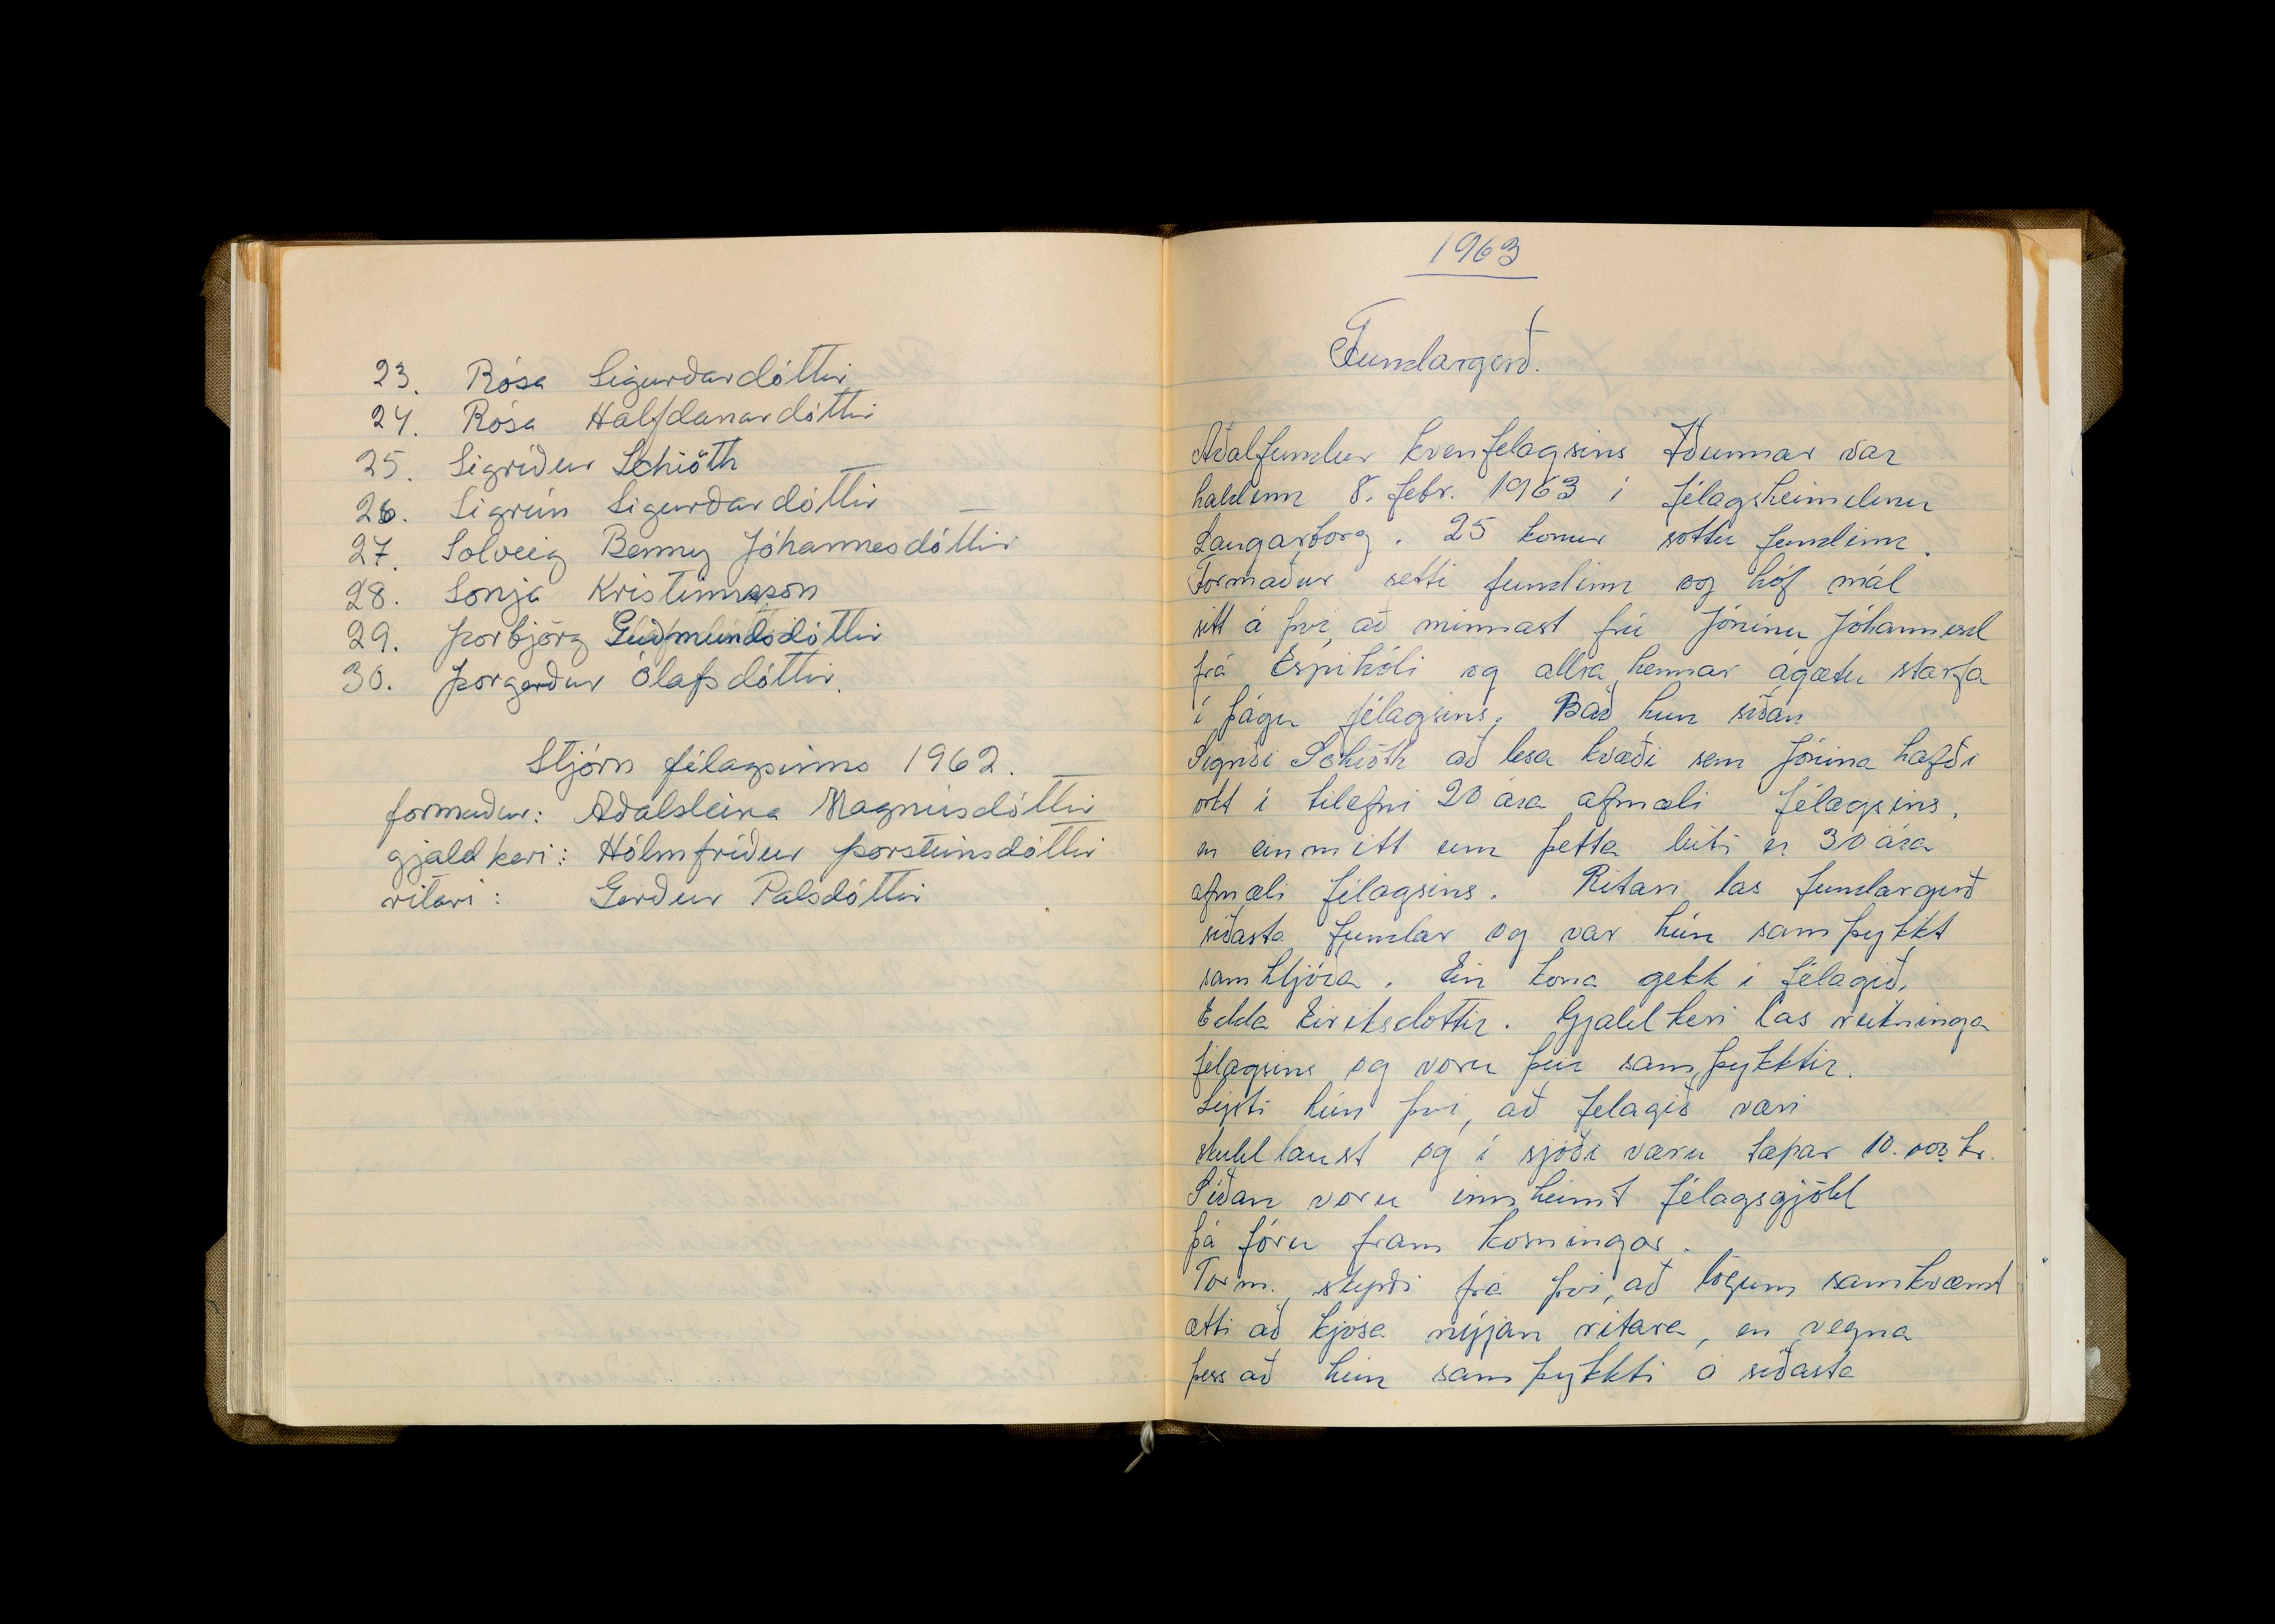 23. Rósa Sigurðardóttir
24. Rósa Hálfdanardóttir
25. Sigríður Schiöth
26. Sigrún Sigurðardóttir
27. Solveig Benny Jóhannesdóttir
28. Sonja Kristinnsson
29. Þorbjörg Guðmundsdóttir
30. Þorgerður Ólafsdóttir.
Stjórn félagsinns 1962.
formaður: Aðalsteina Magnúsdóttir
gjaldkeri: Hólmfríður Þorsteinsdóttir
ritari: Gerður Pálsdóttir
1963
Fundargerð.
Aðalfundur kvenfélagsins Iðunnar var
haldinn 8. febr. 1963 í félagsheimilinu
Laugarborg. 25 konur sóttu fundinn.
Formaður setti fundinn og hóf mál
sitt á því, að minnast frú Jónínu Jóhannesd
frá Espihóli og allra hennar ágætu starfa
í þágu félagsins. Bað hún síðan
Sigríði Schiöth að lesa kvæði sem Jónína hafði
ort í tilefni 20 ára afmæli félagsins,
en einmitt um þetta leiti er 30 ára
afmæli félagsins. Ritari las fundargerð
síðasta fundar og var hún samþykkt
samhljóða. Ein kona gekk í félagið,
Edda Eiríksdóttir. Gjaldkeri las reikninga
félagsins og voru þeir samþykktir.
Lýsti hún því, að félagið væri
skuldlaust og í sjóði væru tæpar 10.000 kr.
Síðan voru innheimt félagsgjöld
Þá fóru fram kosningar.
Form. skýrði frá því, að lögum samkvæmt
ætti að kjósa nýjan ritara, en vegna
þess að hún samþykkti á síðasta